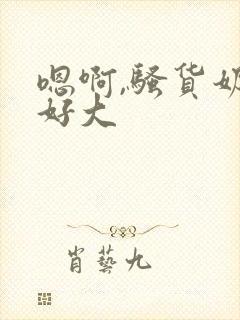 嗯啊,骚货奶
好大
肖藝九